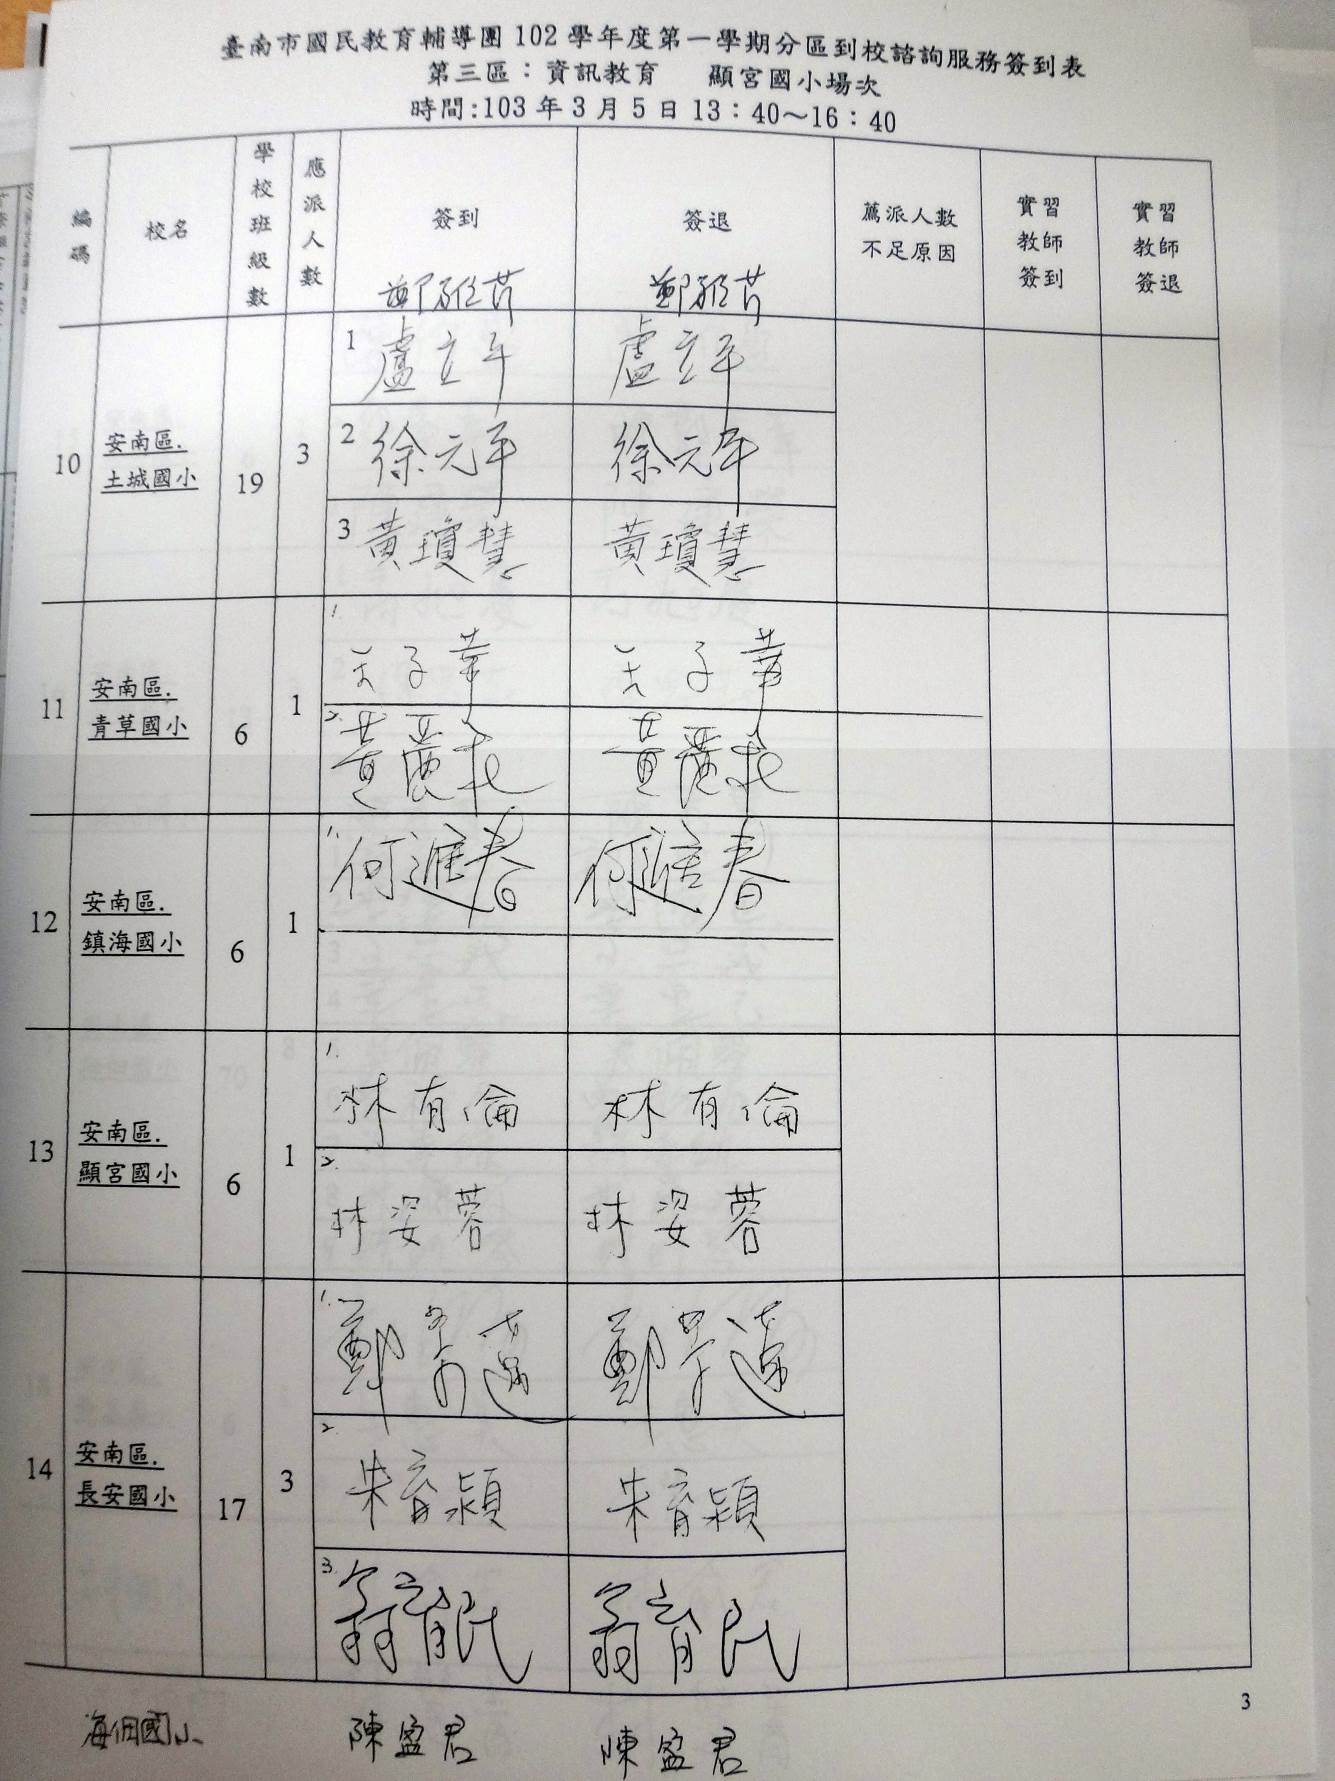 臺南市國民教育輔導團 102 學年度第一學期分區到校諮詢服務簽到表
第三區：資訊教育 顯宮國小場次
時間:103 年 3 月 5 日 13：40～16：40
編碼 校名 學校班級數 應派人數 簽到 簽退 薦派人數不足原因 實習教師簽到 實習教師簽退
鄭雅芬 鄭雅芬
10 安南區.土城國小 19 3
1 盧立平 盧立平
2 徐元平 徐元平
3 黃瓊慧 黃瓊慧
11 安南區.青草國小 6 1
1. 子華 子華
2. 黃麗花 黃麗花
12 安南區.鎮海國小 6 1
1. 何進春 何進春
13 安南區.顯宮國小 6 1
1. 林有倫 林有倫
2. 林姿蓉 林姿蓉
14 安南區.長安國小 17 3
1. 鄭 鄭
2. 朱育穎 朱育穎
3. 翁育民 翁育民
海佃國小 陳盈君 陳盈君
3